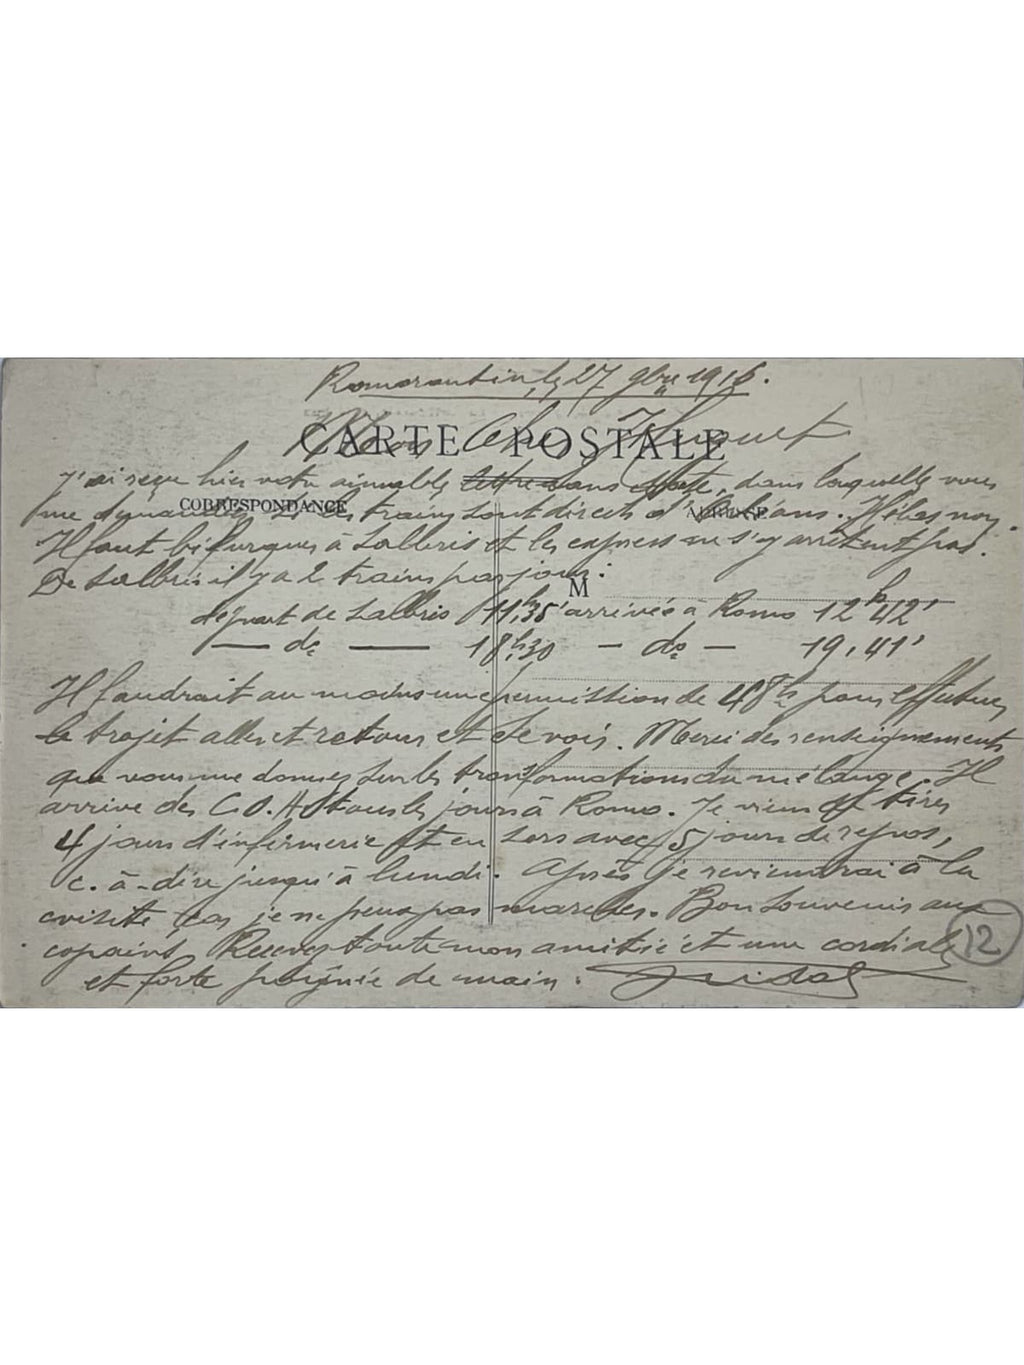 Romorantin, le 27 9bre 1916.
CARTE POSTALE
Mon cher Huguet
J'ai reçu hier votre aimable lettre sans date, dans laquelle vous
CORRESPONDANCE
ADRESSE
me demandez si les trains sont directs d'Orléans. Hélas non.
Il faut bifurquer à Salbris et les express ne s'y arrêtent pas.
De Salbris il y a 2 trains par jour:
M
départ de Salbris 11h,35' arrivée à Romo 12h42'
— do — 18h,30 — do — 19,41'
Il faudrait au moins une permission de 48h pour effectuer
le trajet aller et retour et de voir. Merci des renseignements
que vous me donnez sur les transformations du mélange. Il
arrive des C.O.A tous les jours à Romo. Je viens de tirer
4 jours d'infirmerie et en sors avec 5 jours de repos,
c.à-dire jusqu'à lundi. Après je reviendrai à la
visite car je ne peux pas marcher. Bon souvenir aux
copains. Recevez toute mon amitié et une cordiale
et forte poignée de main.
12